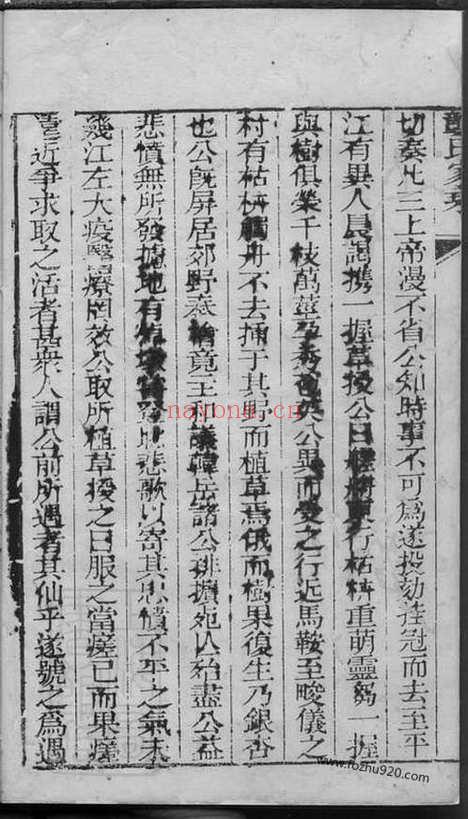 龔氏家乘
切奏凡三上帝漫不省公知時事不可為遂投劾挂冠而去至平
江有異人晨謁携一握草授公曰舟行枯桥重萌靈芻一握
與樹俱榮千枝萬葉公異而受之行近馬鞍至畯儀之
村有枯桥觸舟不去捅于其野而植草焉俄而樹果復生乃銀杏
也公旣屏居郊野秦檜竟主和議韓岳諸公排擯死亾殆盡公益
悲憤無所發攄地有悲歌以寄其忠憤不平之氣未
幾江左大疫醫療罔效公取所植草授之曰服之當瘥已而果瘥
遠近爭求取之活者甚衆人謂公前所遇者其仙乎遂號之為遇
nayona.cn
www.fozhu920.com